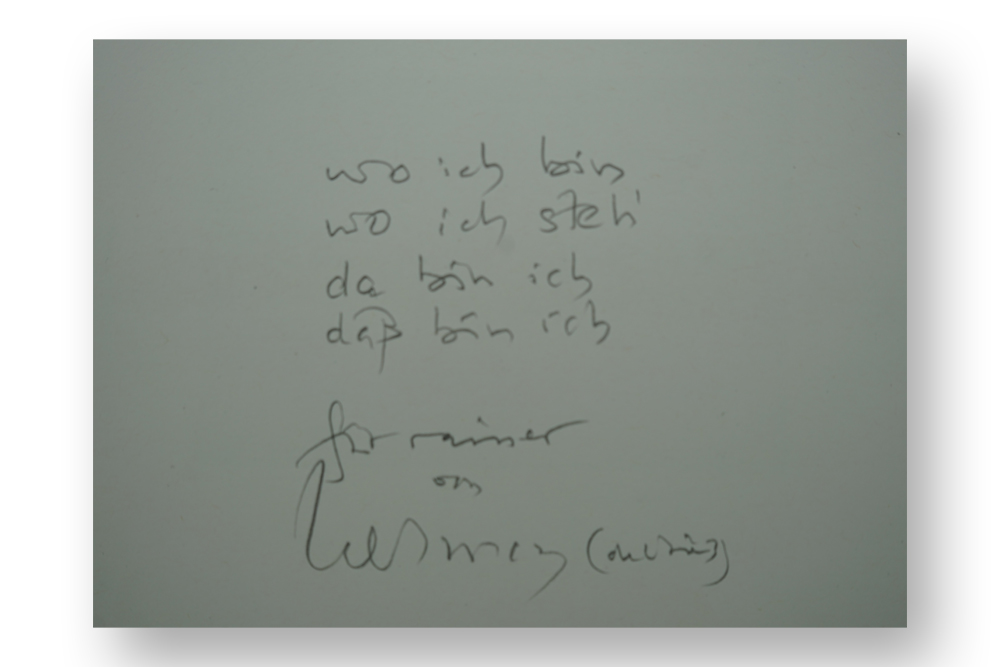 wo ich bin
wo ich steh'
da bin ich
daß bin ich
für rainer